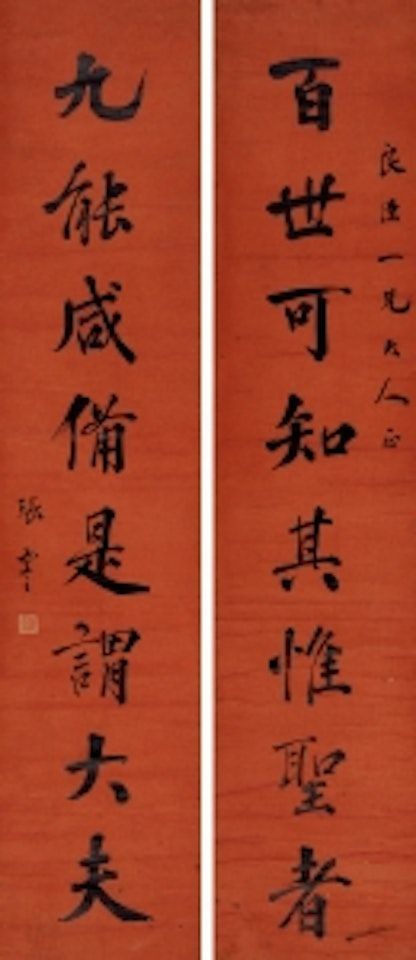 百世可知其惟聖者
良澄一兄大人正
九能咸備是謂大夫
張謇